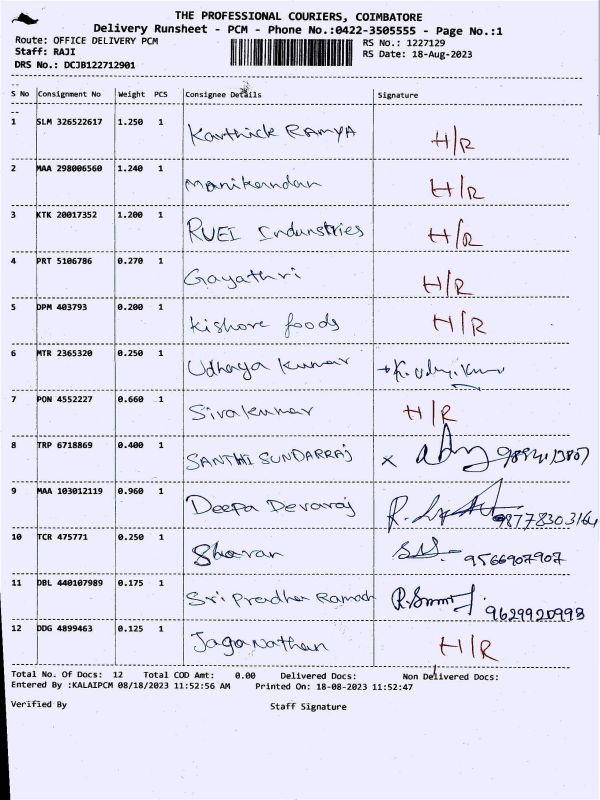 THE PROFESSIONAL COURIERS, COIMBATORE
Delivery Runsheet - PCM - Phone No.:0422-3505555 - Page No.:1
Route: OFFICE DELIVERY PCM RS No.: 1227129
Staff: RAJI RS Date: 18-Aug-2023
DRS No.: DCJB122712901
S No Consignment No Weight PCS Consignee Details Signature
1 SLM 326522617 1.250 1 Karthick RAMYA H/R
2 MAA 298006560 1.240 1 Manikandan H/R
3 KTK 20017352 1.200 1 RUEI Indunstries H/R
4 PRT 5106786 0.270 1 Gayathri H/R
5 DPM 403793 0.200 1 Kishore foods H/R
6 MTR 2365320 0.250 1 Udhaya Kumar
7 PON 4552227 0.660 1 Sivakumar H/R
8 TRP 6718869 0.400 1 SANTHI SUNDARRAJ x
9 MAA 103012119 0.960 1 Deepa Devaraj 98778303164
10 TCR 475771 0.250 1 Sharan 9566907907
11 DBL 440107989 0.175 1 Sri Pradha Ramach 9629920993
12 DDG 4899463 0.125 1 Jaganathan H/R
Total No. Of Docs: 12 Total COD Amt: 0.00 Delivered Docs: Non Delivered Docs:
Entered By :KALAIPCM 08/18/2023 11:52:56 AM Printed On: 18-08-2023 11:52:47
Verified By Staff Signature